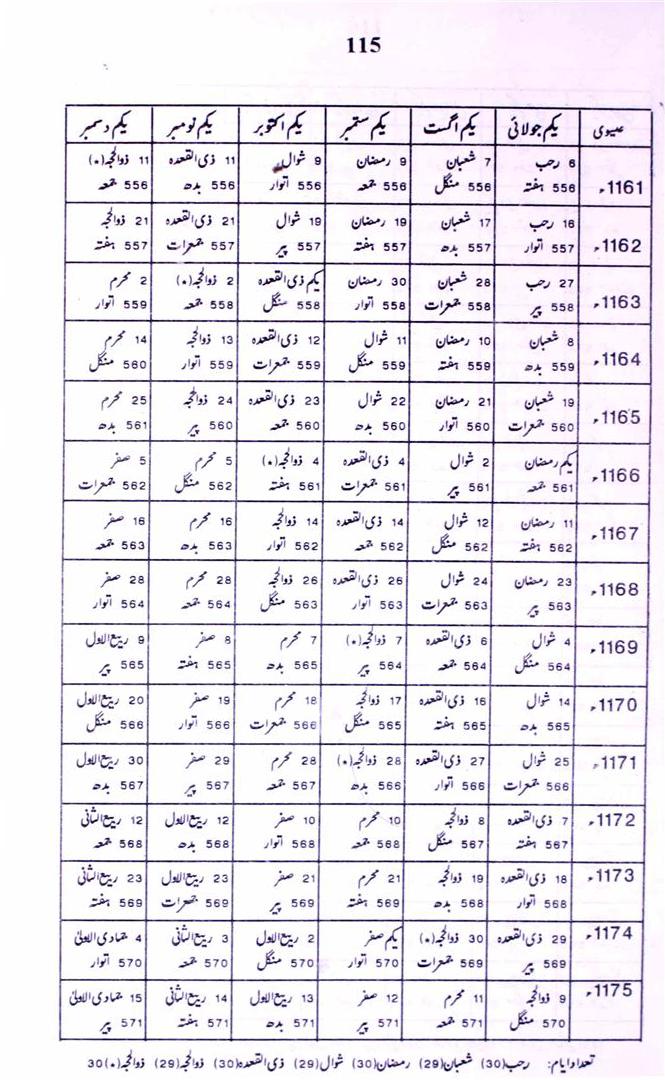 115
عیسوی یکم جولائی یکم اگست یکم ستمبر یکم اکتوبر یکم نومبر یکم دسمبر
1161ء 6 رجب 7 شعبان 9 رمضان 9 شوال 11 ذی القعدہ 11 ذوالحجہ(*)
556 ہفتہ 556 منگل 556 جمعہ 556 اتوار 556 بدھ 556 جمعہ
1162ء 16 رجب 17 شعبان 19 رمضان 19 شوال 21 ذی القعدہ 21 ذوالحجہ
557 اتوار 557 بدھ 557 ہفتہ 557 پیر 557 جمعرات 557 ہفتہ
1163ء 27 رجب 28 شعبان 30 رمضان یکم ذی القعدہ 2 ذوالحجہ(*) 2 محرم
558 پیر 558 جمعرات 558 اتوار 558 منگل 558 جمعہ 559 اتوار
1164ء 8 شعبان 10 رمضان 11 شوال 12 ذی القعدہ 13 ذوالحجہ 14 محرم
559 بدھ 559 ہفتہ 559 منگل 559 جمعرات 559 اتوار 560 منگل
1165ء 19 شعبان 21 رمضان 22 شوال 23 ذی القعدہ 24 ذوالحجہ 25 محرم
560 جمعرات 560 اتوار 560 بدھ 560 جمعہ 560 پیر 561 بدھ
1166ء یکم رمضان 2 شوال 4 ذی القعدہ 4 ذوالحجہ(*) 5 محرم 5 صفر
561 جمعہ 561 پیر 561 جمعرات 561 ہفتہ 562 منگل 562 جمعرات
1167ء 11 رمضان 12 شوال 14 ذی القعدہ 14 ذوالحجہ 16 محرم 16 صفر
562 ہفتہ 562 منگل 562 جمعہ 562 اتوار 563 بدھ 563 جمعہ
1168ء 23 رمضان 24 شوال 26 ذی القعدہ 26 ذوالحجہ 28 محرم 28 صفر
563 پیر 563 جمعرات 563 اتوار 563 منگل 564 جمعہ 564 اتوار
1169ء 4 شوال 6 ذی القعدہ 7 ذوالحجہ(*) 7 محرم 8 صفر 9 ربیع الاول
564 منگل 564 جمعہ 564 پیر 565 بدھ 565 ہفتہ 565 پیر
1170ء 14 شوال 16 ذی القعدہ 17 ذوالحجہ 18 محرم 19 صفر 20 ربیع الاول
565 بدھ 565 ہفتہ 565 منگل 566 جمعرات 566 اتوار 566 منگل
1171ء 25 شوال 27 ذی القعدہ 28 ذوالحجہ(*) 28 محرم 29 صفر 30 ربیع الاول
566 جمعرات 566 اتوار 566 بدھ 567 جمعہ 567 پیر 567 بدھ
1172ء 7 ذی القعدہ 8 ذوالحجہ 10 محرم 10 صفر 12 ربیع الاول 12 ربیع الثانی
567 ہفتہ 567 منگل 568 جمعہ 568 اتوار 568 بدھ 568 جمعہ
1173ء 18 ذی القعدہ 19 ذوالحجہ 21 محرم 21 صفر 23 ربیع الاول 23 ربیع الثانی
568 اتوار 568 بدھ 569 ہفتہ 569 پیر 569 جمعرات 569 ہفتہ
1174ء 29 ذی القعدہ 30 ذوالحجہ(*) یکم صفر 2 ربیع الاول 3 ربیع الثانی 4 جمادی الاولیٰ
569 پیر 569 جمعرات 570 اتوار 570 منگل 570 جمعہ 570 اتوار
1175ء 9 ذوالحجہ 11 محرم 12 صفر 13 ربیع الاول 14 ربیع الثانی 15 جمادی الاولیٰ
570 منگل 571 جمعہ 571 پیر 571 بدھ 571 ہفتہ 571 پیر
تعداد ایام: رجب(30) شعبان(29) رمضان(30) شوال(29) ذی القعدہ(30) ذوالحجہ(29) ذوالحجہ(*)30